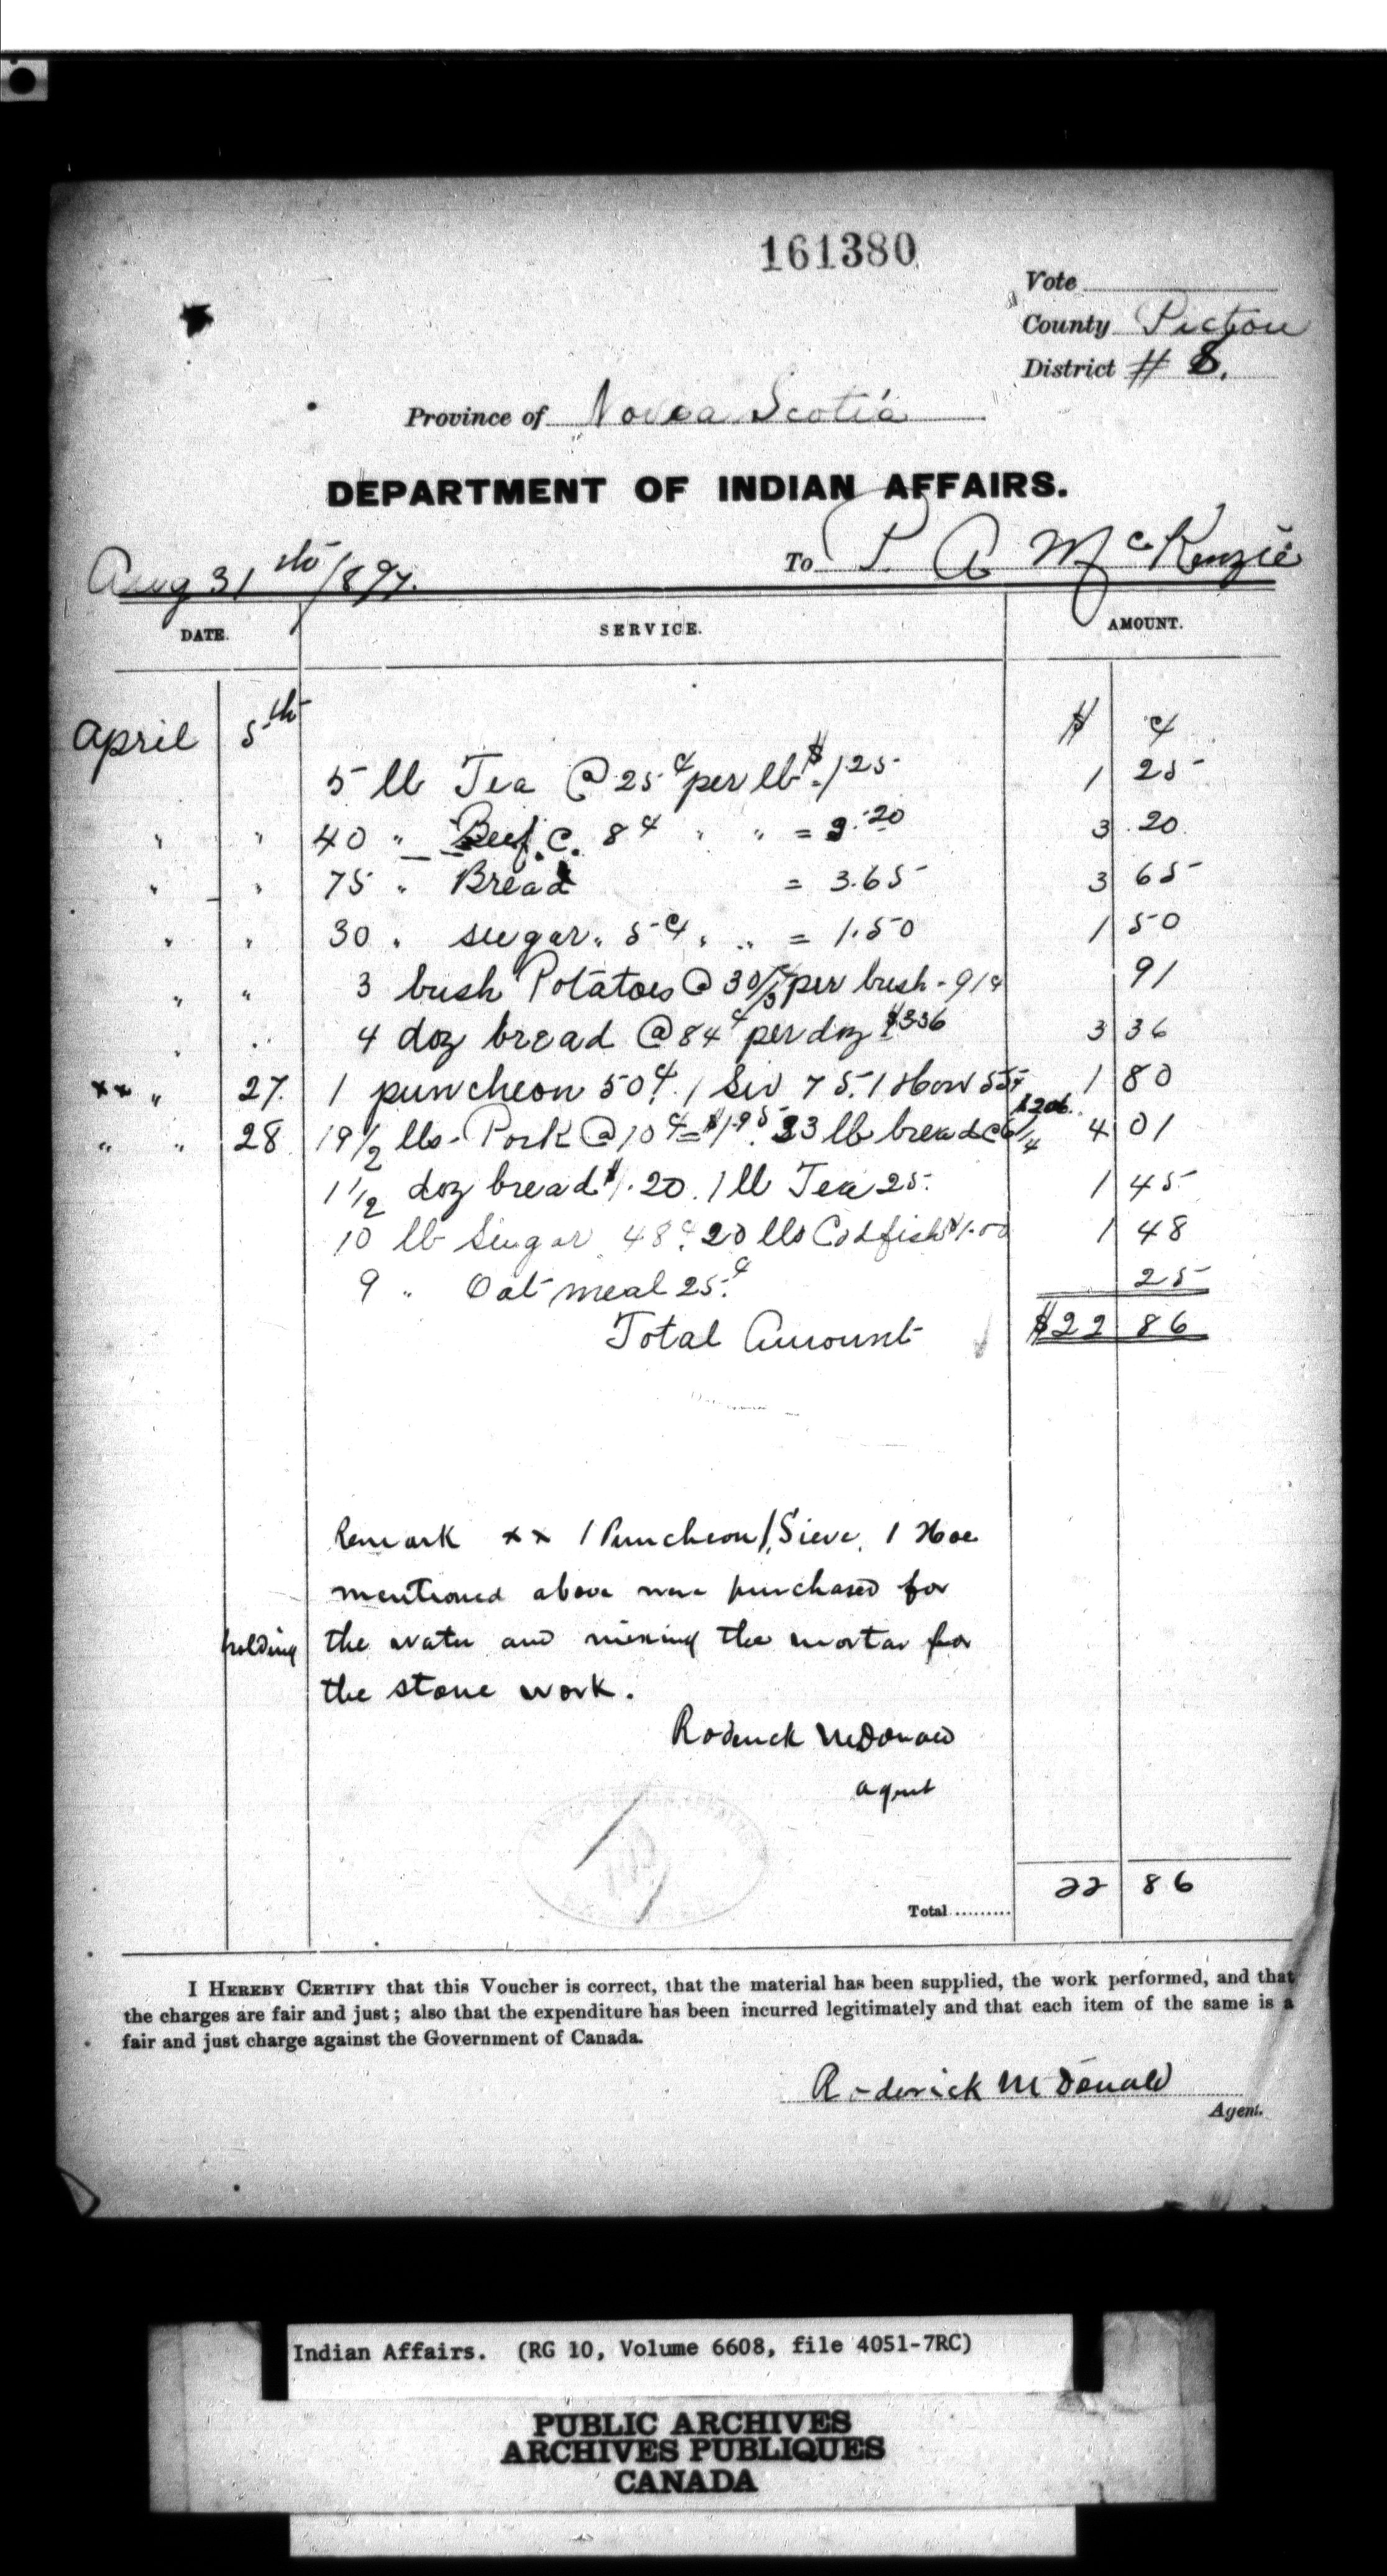 161380
Vote
County Pictou
District # 8.
Province of Nova Scotia
DEPARTMENT OF INDIAN AFFAIRS.
Aug 31 th /897. To P. A. Mc Kenzie
DATE. SERVICE. AMOUNT.
April 5th $ ¢
5 lb Tea @ 25¢ per lb $1.25 1 25
" " 40 " Beef. C. 8¢ " " = 3.20 3 .20
" " 75 " Bread = 3.65 3 65
" " 30 " sugar " 5¢ " " = 1.50 1 50
" " 3 bush Potatoes @ 30 1/3¢ per bush - 91¢ 91
" " 4 doz bread @ 84¢ per doz $3.36 3 36
xx " 27. 1 puncheon 50¢. 1 Siv 75. 1 How 55¢ 1 80
" " 28 19 1/2 lbs. Pork @ 10¢ = $1.95 33 lb bread @ 6 1/4 $2.06. 4 01
1 1/2 doz bread $1.20. 1 lb Tea 25. 1 45
10 lb Sugar 48¢. 20 lbs Codfish $1.00 1 48
9 " Oat meal 25.¢ 25
Total Amount $22 86
Remark xx 1 Puncheon, 1 Sieve, 1 Hoe
mentioned above were purchased for
holding the water and mixing the mortar for
the stone work.
Roderick McDonald
agent
Total.......... 22 86
I HEREBY CERTIFY that this Voucher is correct, that the material has been supplied, the work performed, and that
the charges are fair and just; also that the expenditure has been incurred legitimately and that each item of the same is a
fair and just charge against the Government of Canada.
Roderick McDonald
Agent.
Indian Affairs. (RG 10, Volume 6608, file 4051-7RC)
PUBLIC ARCHIVES
ARCHIVES PUBLIQUES
CANADA